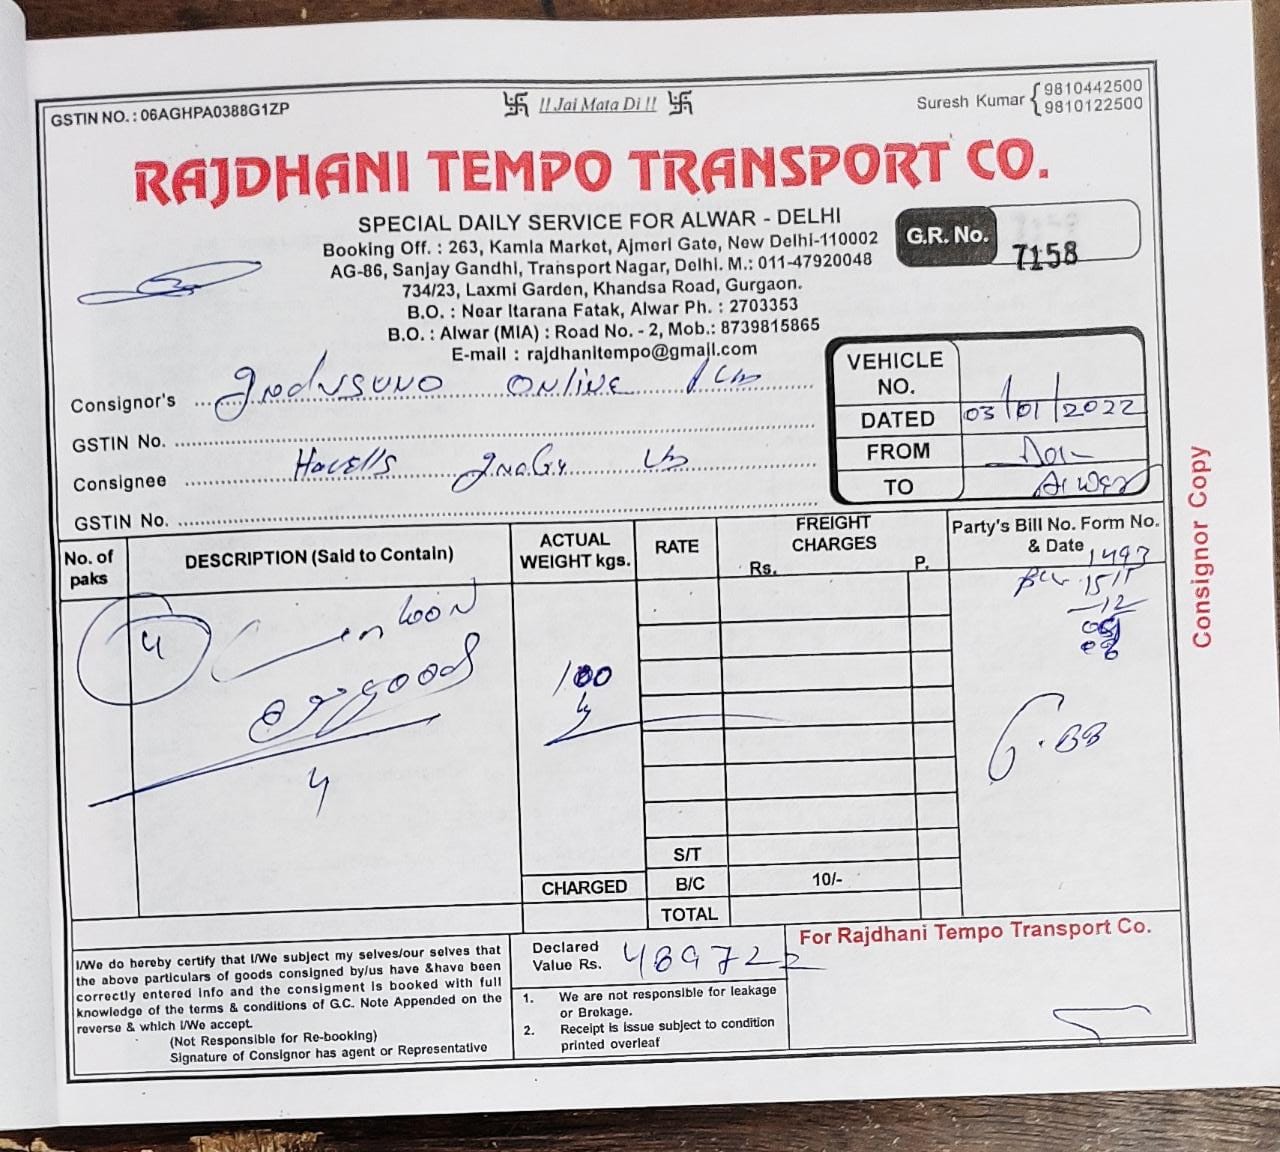 GSTIN NO. : 06AGHPA0388G1ZP
!! Jai Mata Di !!
Suresh Kumar 9810442500
9810122500
RAJDHANI TEMPO TRANSPORT CO.
SPECIAL DAILY SERVICE FOR ALWAR - DELHI
Booking Off. : 263, Kamla Market, Ajmeri Gate, New Delhi-110002
AG-86, Sanjay Gandhi, Transport Nagar, Delhi. M.: 011-47920048
734/23, Laxmi Garden, Khandsa Road, Gurgaon.
B.O. : Near Itarana Fatak, Alwar Ph. : 2703353
B.O. : Alwar (MIA) : Road No. - 2, Mob.: 8739815865
E-mail : rajdhanitempo@gmail.com
G.R. No. 7158
Consignor's Online
GSTIN No.
Consignee Havells
GSTIN No.
VEHICLE NO.
DATED 03/01/2022
FROM
TO Alwar
Consignor Copy
No. of paks
DESCRIPTION (Said to Contain)
ACTUAL WEIGHT kgs.
RATE
FREIGHT CHARGES
Rs. P.
Party's Bill No. Form No. & Date
1493
4
goods
4
100
S/T
CHARGED
B/C 10/-
TOTAL
I/We do hereby certify that I/We subject my selves/our selves that
the above particulars of goods consigned by/us have &have been
correctly entered info and the consigment is booked with full
knowledge of the terms & conditions of G.C. Note Appended on the
reverse & which I/We accept.
(Not Responsible for Re-booking)
Signature of Consignor has agent or Representative
Declared
Value Rs. 489722
1. We are not responsible for leakage
or Brokage.
2. Receipt is issue subject to condition
printed overleaf
For Rajdhani Tempo Transport Co.